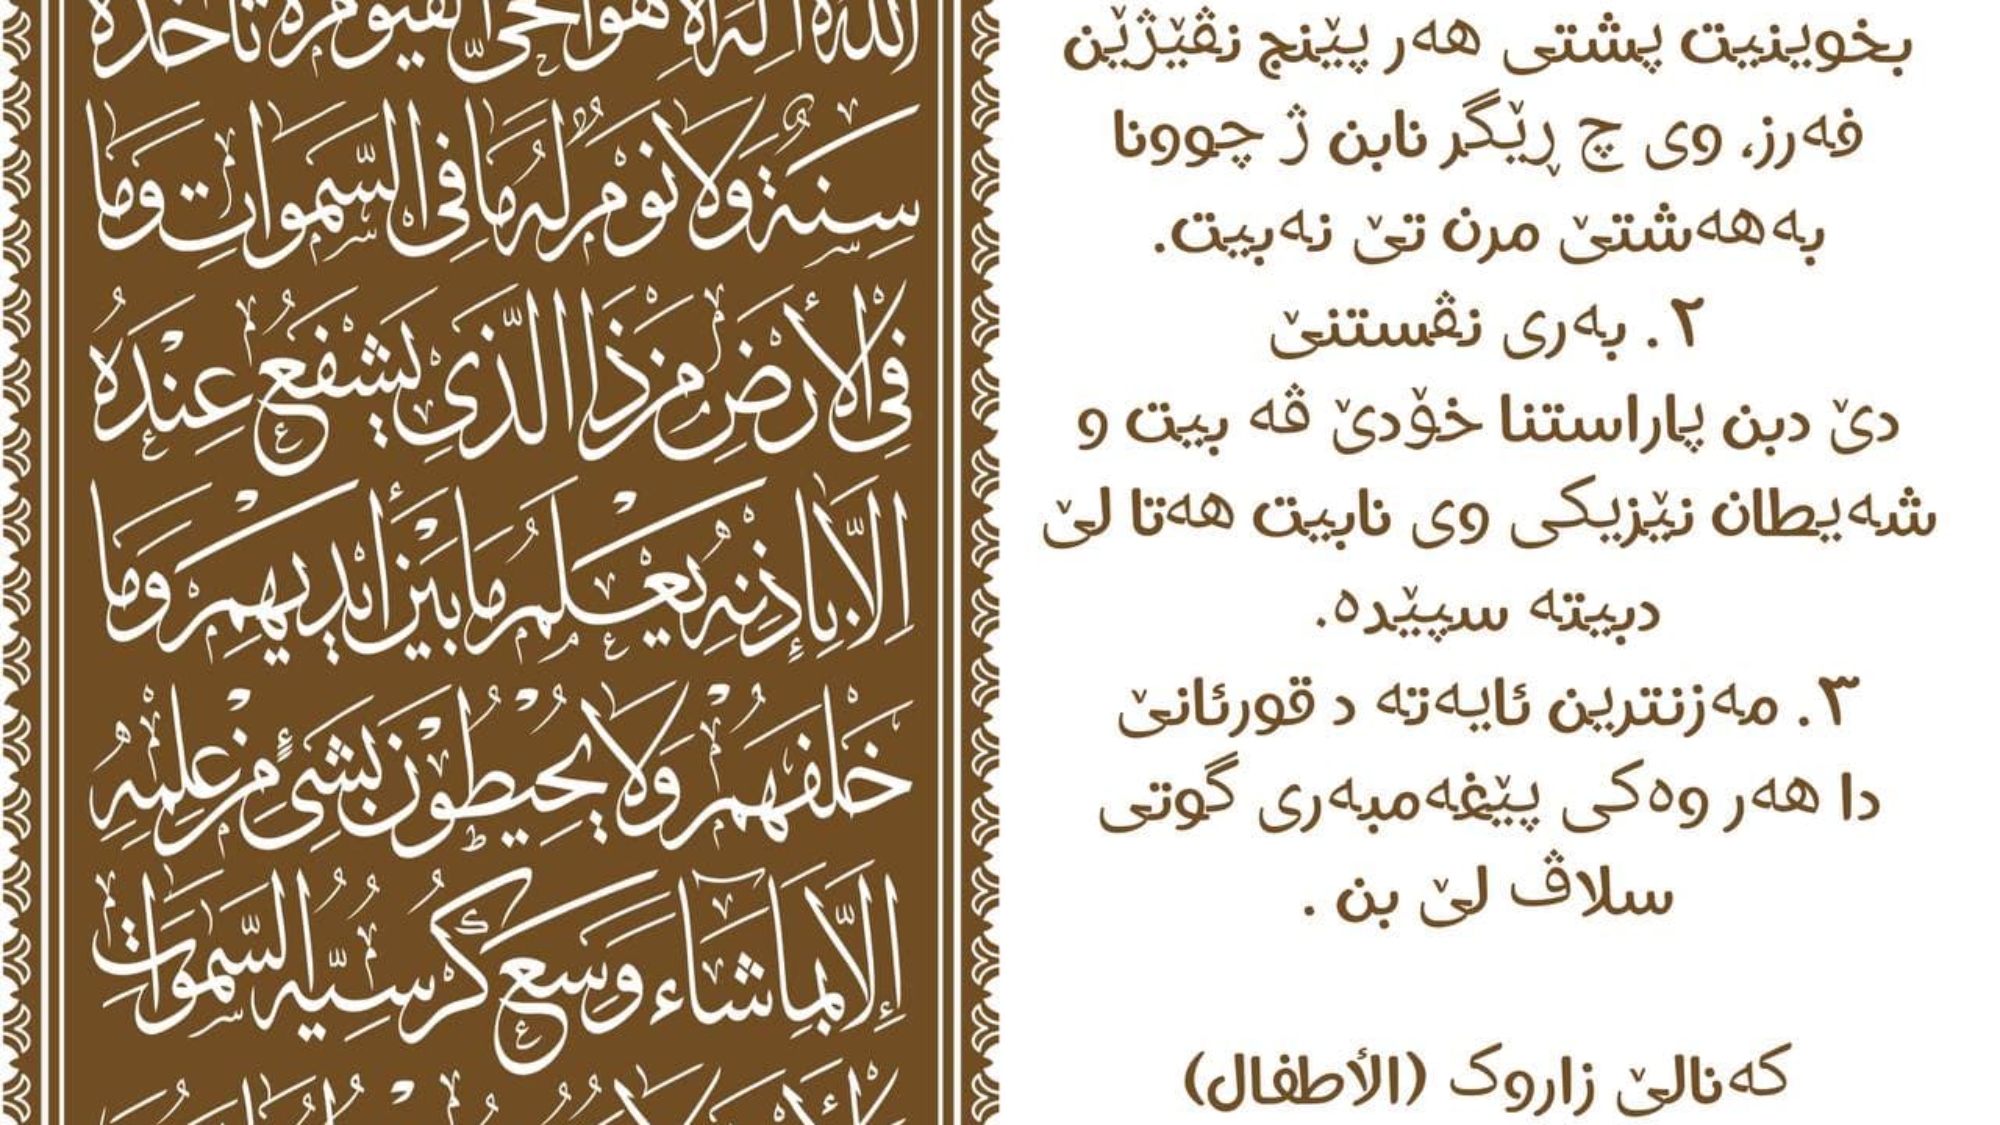 الله لا إله إلا هو الحي القيوم لا تأخذه
سِنَةٌ وَلَا نَوْمٌ لَهُ مَا فِي السَّمَوَاتِ وَمَا
فِي الْأَرْضِ مَنْ ذَا الَّذِي يَشْفَعُ عِنْدَهُ
إِلَّا بِإِذْنِهِ يَعْلَمُ مَا بَيْنَ أَيْدِيهِمْ وَمَا
خَلْفَهُمْ وَلَا يُحِيطُونَ بِشَيْءٍ مِنْ عِلْمِهِ
إِلَّا بِمَا شَاءَ وَسِعَ كُرْسِيُّهُ السَّمَوَاتِ
بخوینیت پشتی هەر پێنج نڤێژێن
فەرز، وی چ ڕێگر نابن ژ چوونا
بەهەشتێ مرن تێ نەبیت.
٢. بەری نڤستنێ
دێ دبن پاراستنا خۆدێ ڤە بیت و
شەیطان نێزیکی وی نابیت هەتا لێ
دبیتە سپێدە.
٣. مەزنترین ئایەتە د قورئانێ
دا هەر وەکی پێغەمبەری گوتی
سلاڤ لێ بن .
کەنالێ زاروک (الأطفال)